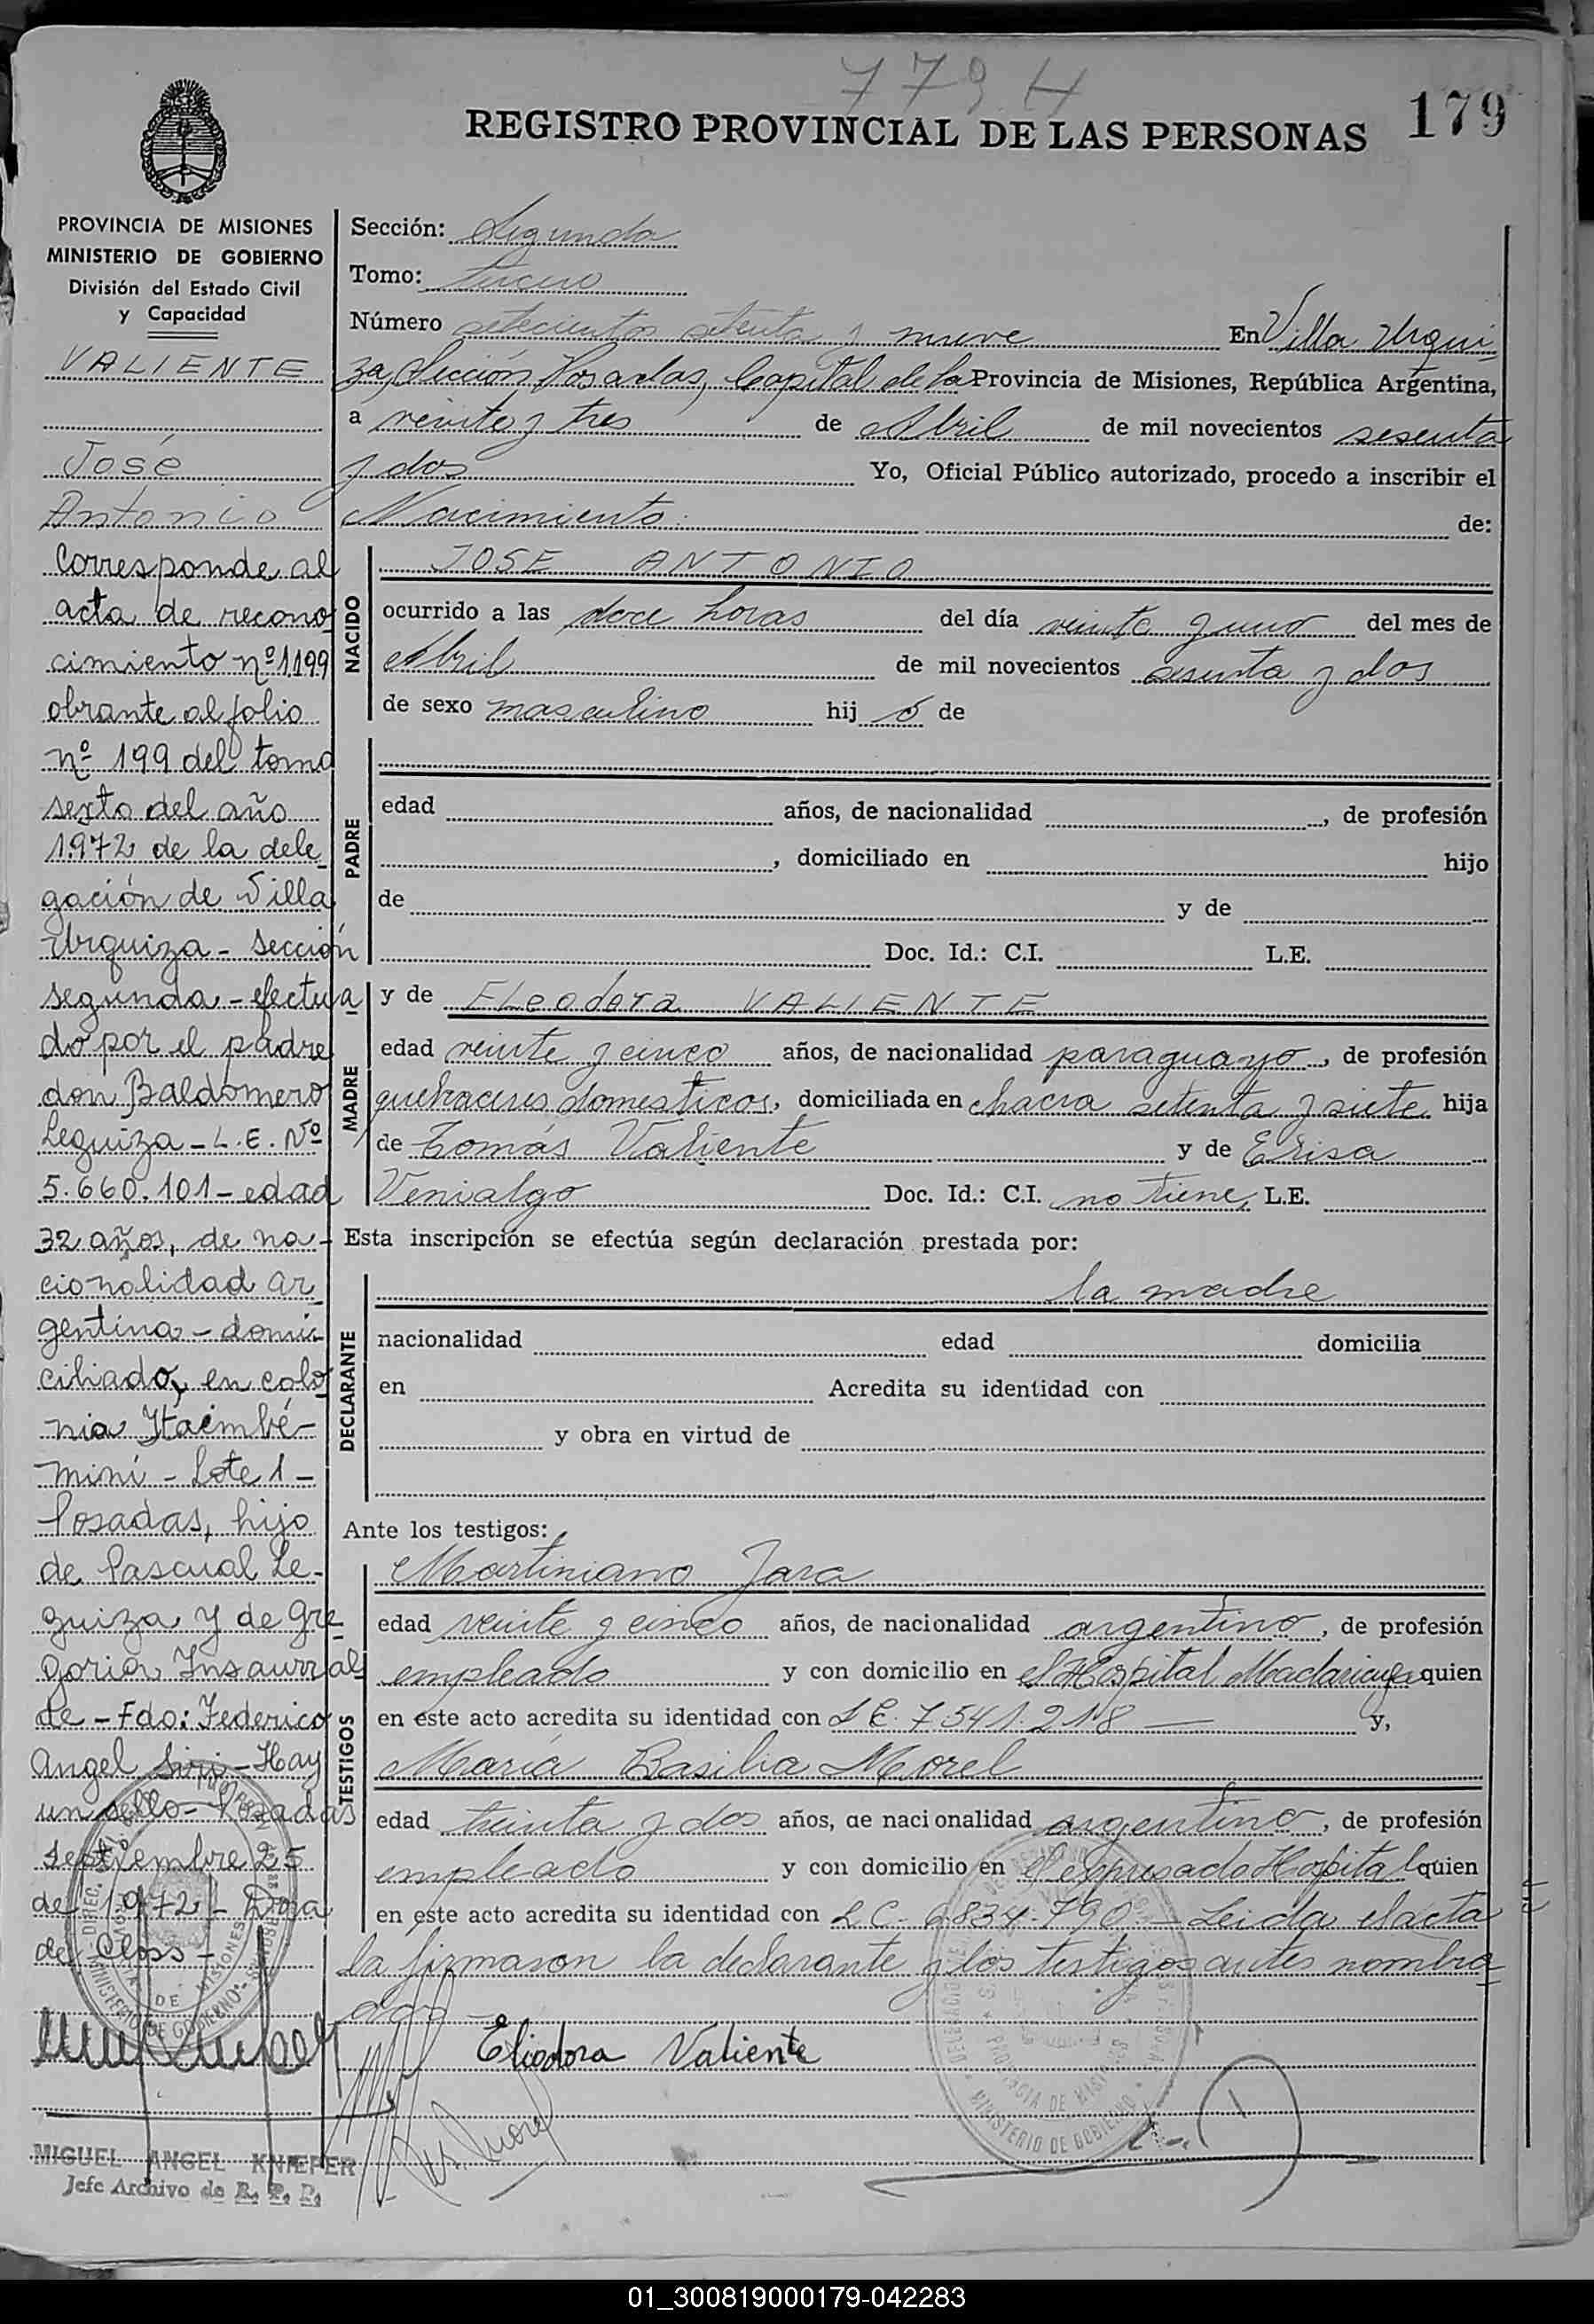 779 H
REGISTRO PROVINCIAL DE LAS PERSONAS
179
PROVINCIA DE MISIONES
MINISTERIO DE GOBIERNO
División del Estado Civil
y Capacidad
VALIENTE
José
Antonio
Corresponde al
acta de recono
cimiento nº 1199
obrante al folio
nº 199 del tomo
sexto del año
1.972 de la dele
gación de Villa
Urquiza - sección
segunda - efectua
do por el padre
don Baldomero
Leguiza - L.E. Nº
5.660.101 - edad
32 años, de na-
cionalidad ar
gentina - domi
ciliado, en colo
nia Itaembé-
miní - Lote 1 -
Posadas, hijo
de Pascual Le-
guiza y de Gre
goria Insaurral
de - Fdo: Federico
Angel Siri - Hay
un sello - Posadas
Septiembre 25
de 1972 - Dora
de Closs -
MIGUEL ANGEL KNÆPER
Jefe Archivo de R. P. P.
Sección: Segunda
Tomo: Tercero
Número setecientos setenta y nueve En Villa Urqui
za, Sección Posadas, Capital de la Provincia de Misiones, República Argentina,
a veinte y tres de Abril de mil novecientos sesenta
y dos Yo, Oficial Público autorizado, procedo a inscribir el
Nacimiento: de:
NACIDO
JOSE ANTONIO
ocurrido a las doce horas del día veinte y uno del mes de
Abril de mil novecientos sesenta y dos
de sexo masculino hij o de
PADRE
edad años, de nacionalidad , de profesión
, domiciliado en hijo
de y de
Doc. Id.: C.I. L.E.
MADRE
y de Eleodora VALIENTE
edad veinte y cinco años, de nacionalidad paraguayo, de profesión
quehaceres domesticos, domiciliada en chacra setenta y siete hija
de Tomás Valiente y de Erisa
Venialgo Doc. Id.: C.I. no tiene, L.E.
Esta inscripción se efectúa según declaración prestada por:
DECLARANTE
la madre
nacionalidad edad domicilia
en Acredita su identidad con
y obra en virtud de
Ante los testigos:
TESTIGOS
Martiniano Jara
edad veinte y cinco años, de nacionalidad argentino, de profesión
empleado y con domicilio en el Hospital Madariaga quien
en este acto acredita su identidad con L E. 7.541.218 — y,
María Basilia Morel
edad treinta y dos años, de nacionalidad argentino, de profesión
empleado y con domicilio en el expresado Hospital quien
en este acto acredita su identidad con L C. 6834.790 - Leida el acta
la firmaron la declarante y los testigos antes nombra
dos -
Eliodora Valiente
MINISTERIO DE GOBIERNO
PROVINCIA DE MISIONES
01_300819000179-042283